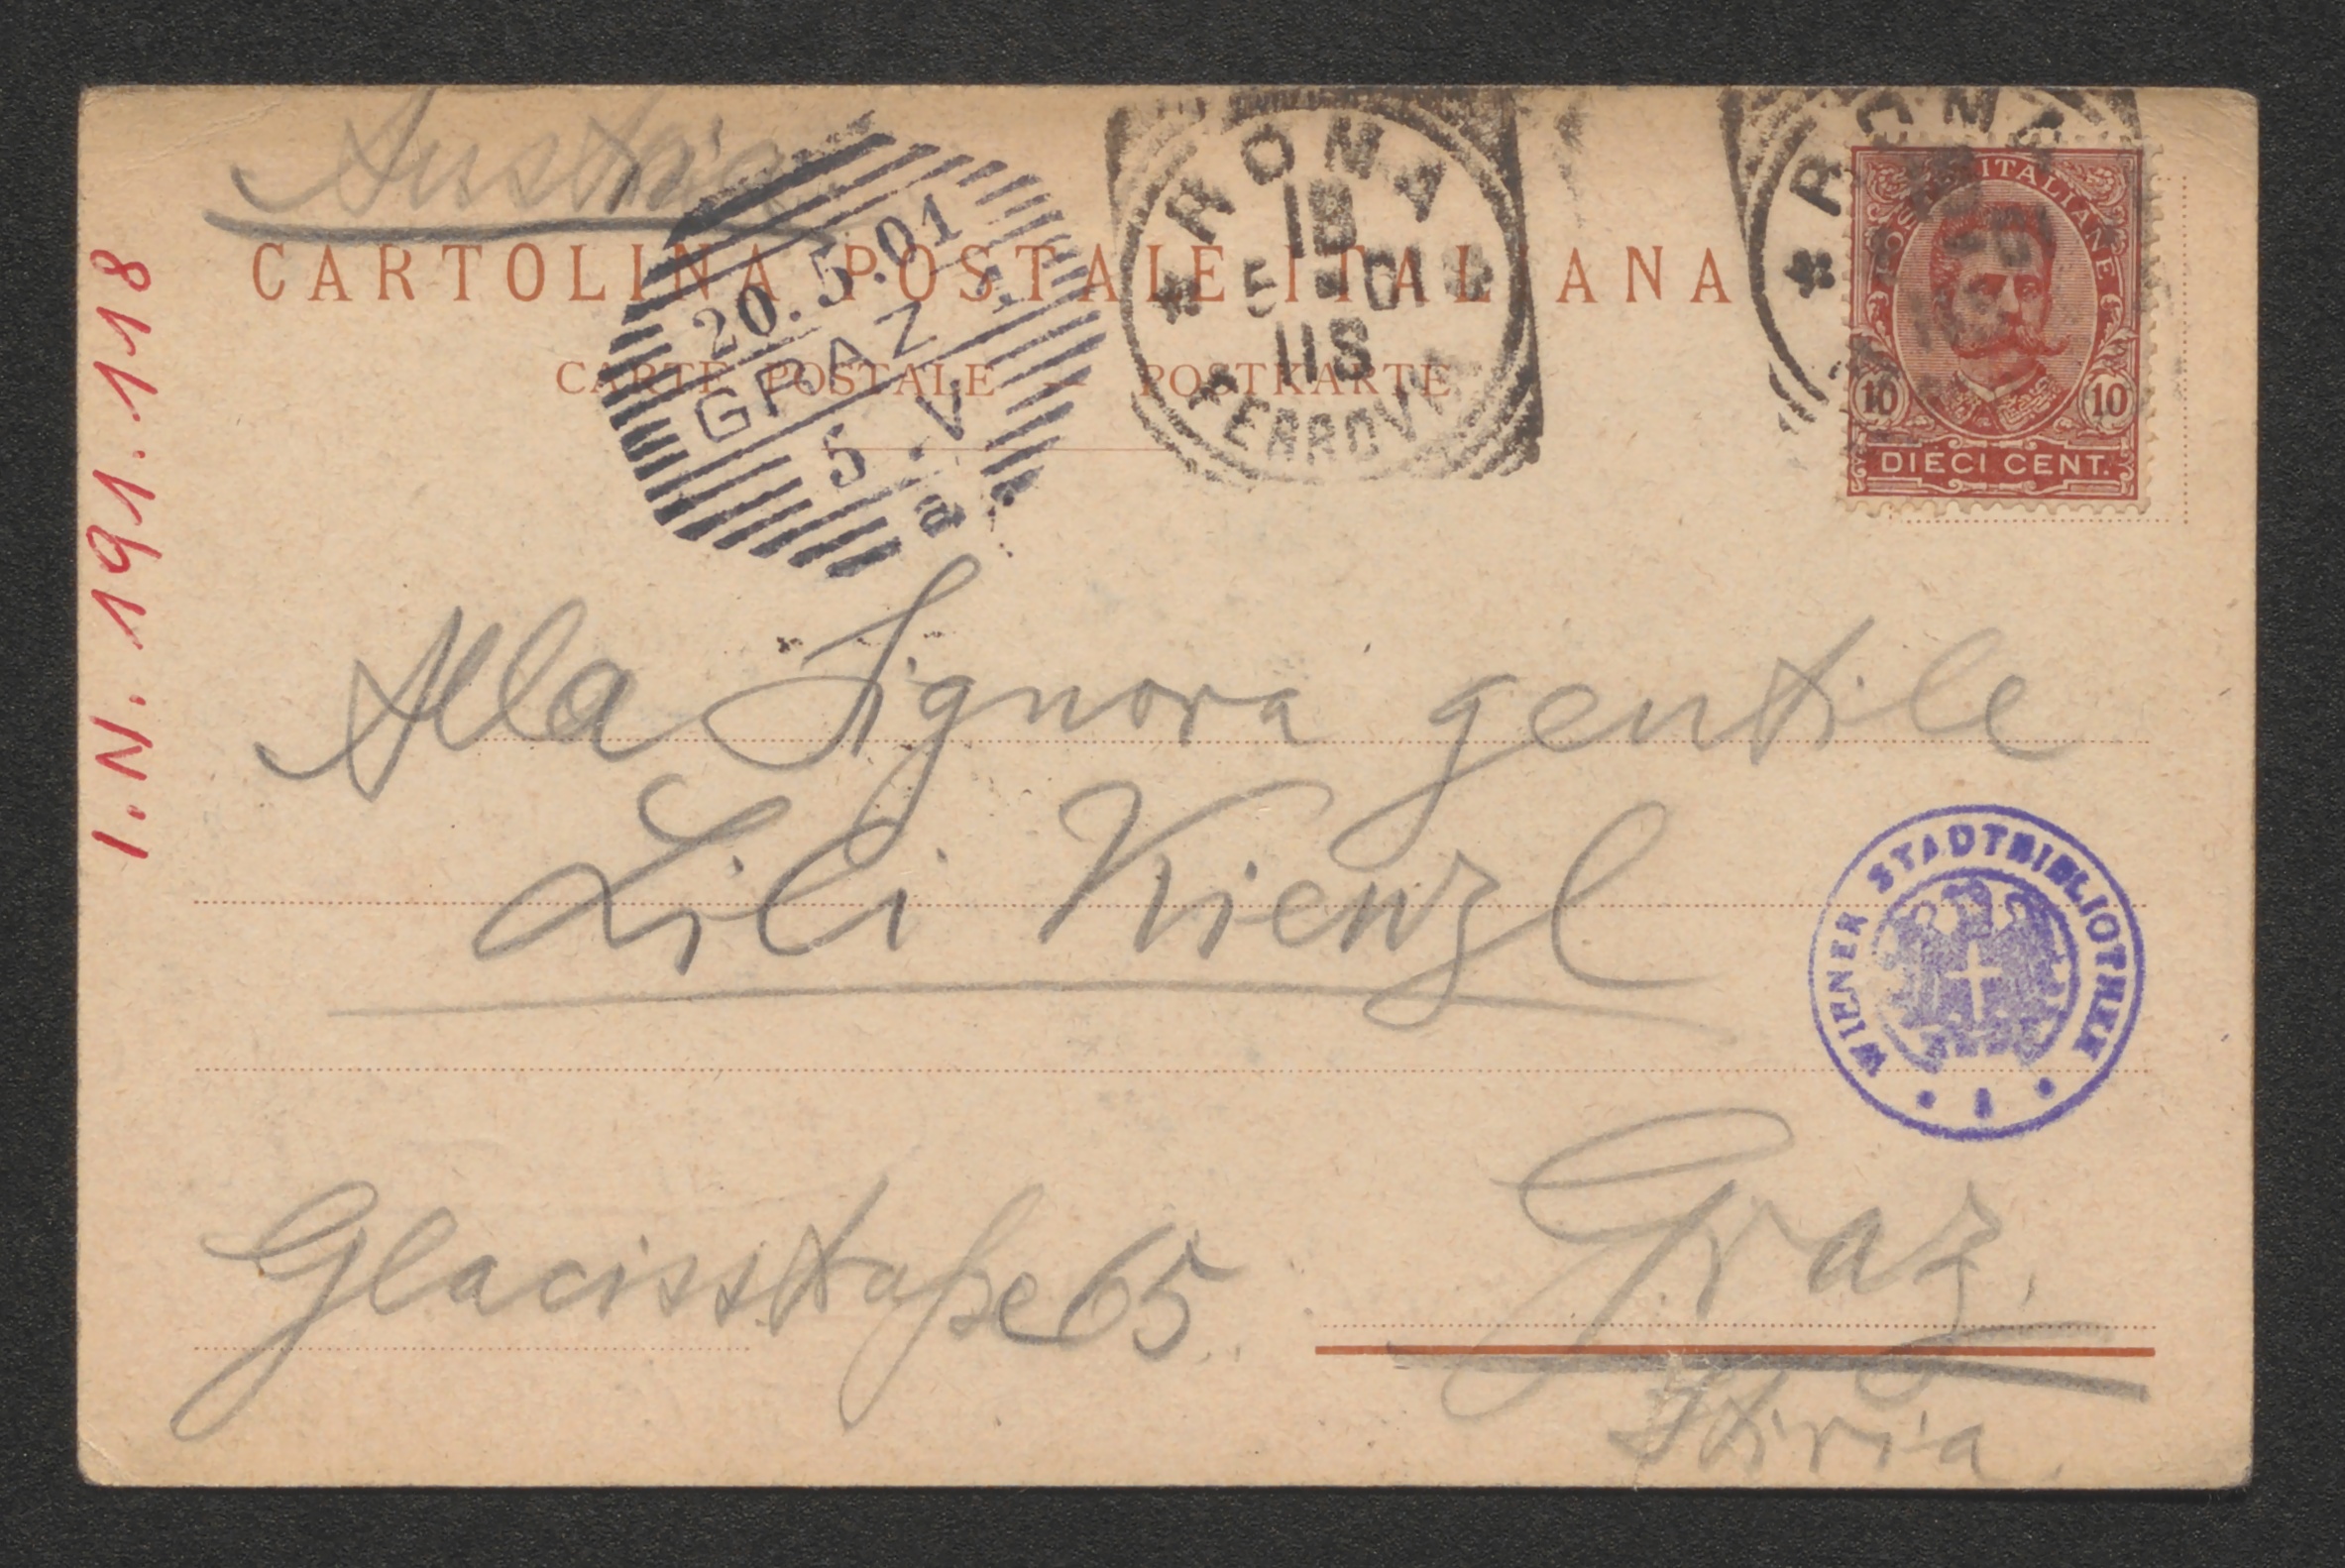 Austria
CARTOLINA POSTALE ITALIANA
CARTE POSTALE — POSTKARTE
20.5.01
GRAZ
5 V
a
ROMA
18
5-01
11S
FERROVIA
ROMA
POSTE ITALIANE
10 10
DIECI CENT.
I.N. 191.118
Alla Signora gentile
Lili Kienzl
WIENER STADTBIBLIOTHEK
Glacisstraße 65.
Graz.
Stiria.